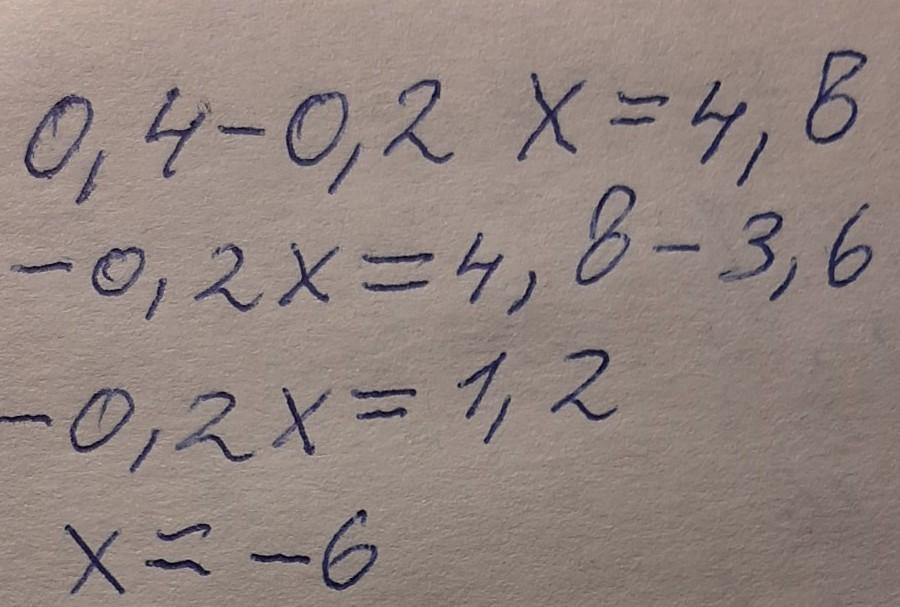 0,4-0,2 x=4,8
-0,2x=4,8-3,6
-0,2x=1,2
x=-6